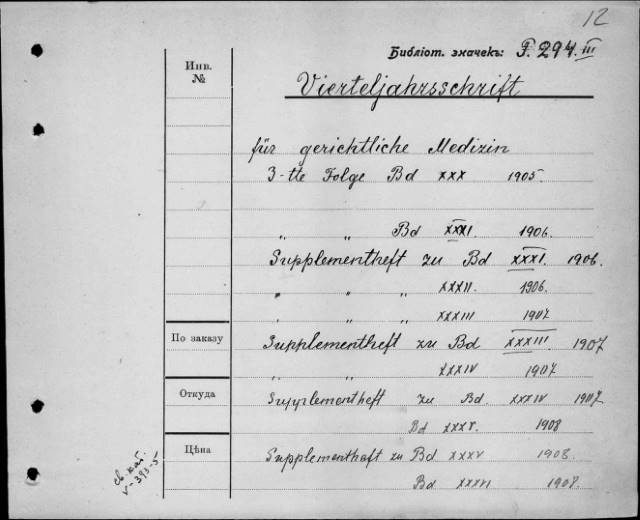 12
Библіот. значекъ: F. 294. III
Инв. №
Vierteljahrsschrift
für gerichtliche Medizin
3-tte Folge Bd XXX 1905.
„ „ Bd XXXI. 1906.
Supplementheft zu Bd XXXI. 1906.
„ „ „ XXXII. 1906.
„ „ „ XXXIII 1907
По заказу
Supplementheft zu Bd XXXIII. 1907
„ „ XXXIV 1907
Откуда
Supplementheft zu Bd XXXIV 1907
Bd XXXV. 1908
Цѣна
Supplementheft zu Bd XXXV 1908.
Bd XXXVI 1908.
св. кат.
V-393-5